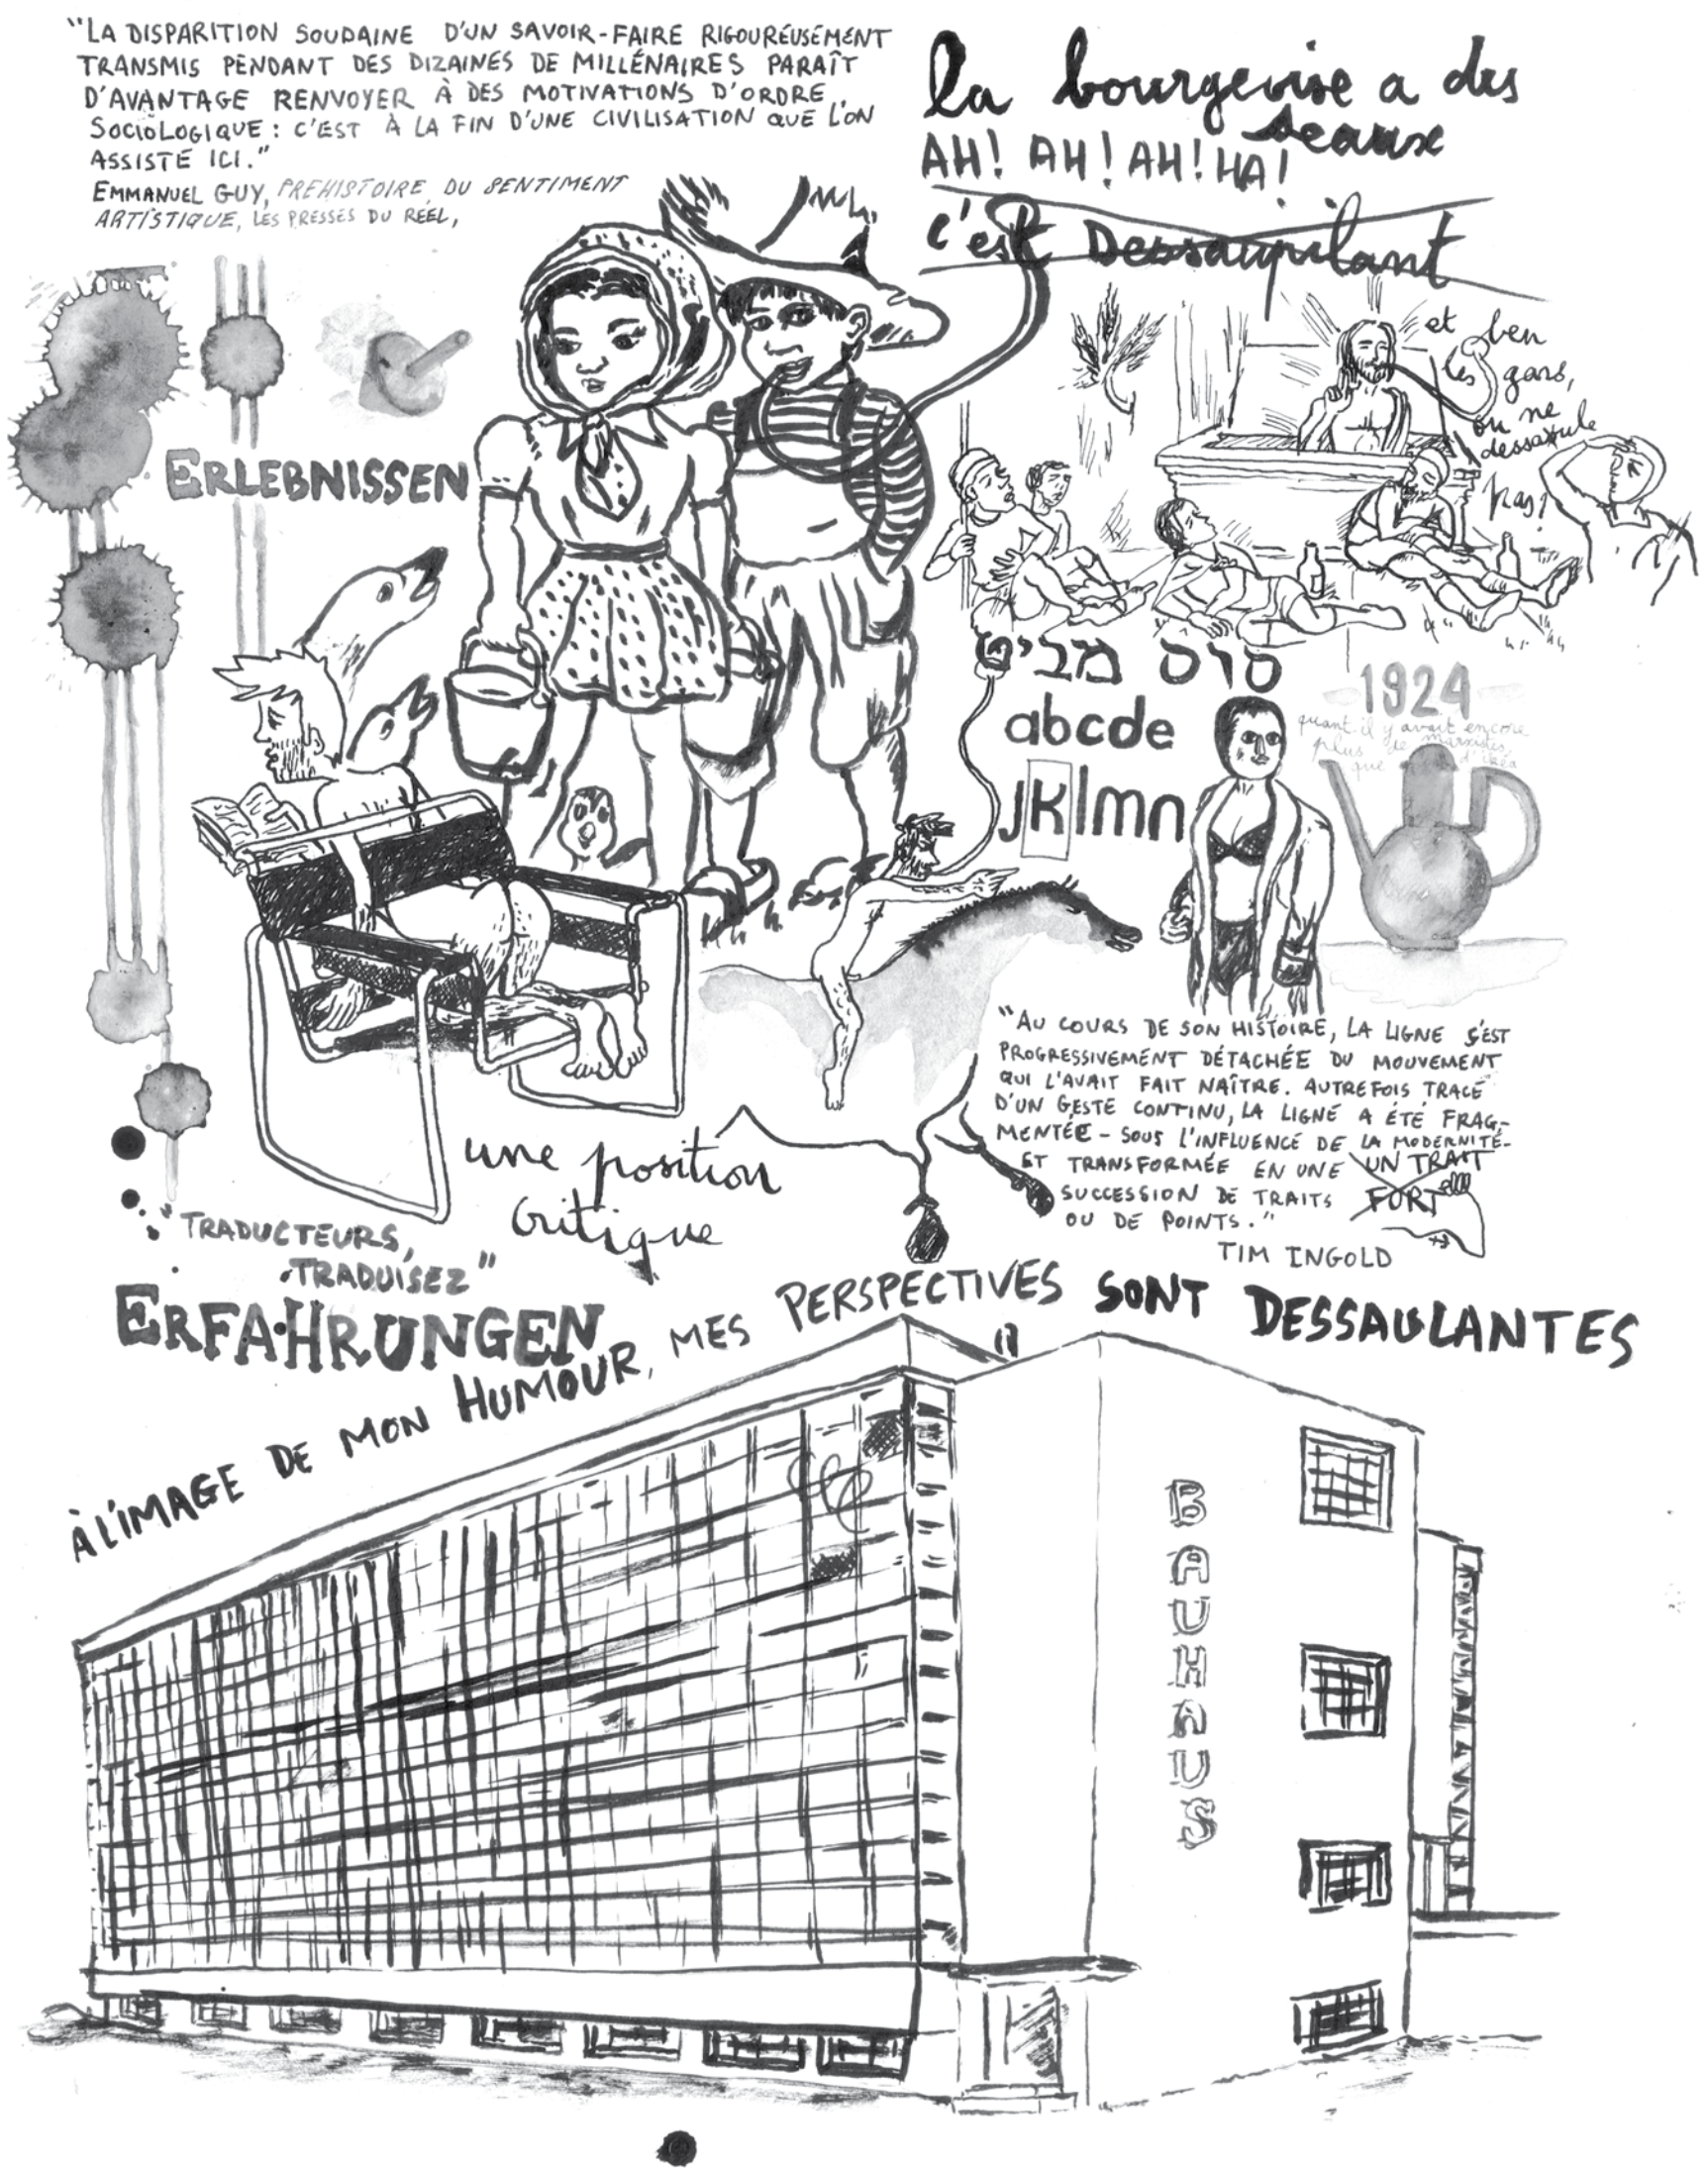 "LA DISPARITION SOUDAINE D'UN SAVOIR-FAIRE RIGOUREUSEMENT
TRANSMIS PENDANT DES DIZAINES DE MILLÉNAIRES PARAÎT
D'AVANTAGE RENVOYER À DES MOTIVATIONS D'ORDRE
SOCIOLOGIQUE : C'EST À LA FIN D'UNE CIVILISATION QUE L'ON
ASSISTE ICI."
EMMANUEL GUY, PREHISTOIRE DU SENTIMENT
ARTISTIQUE, LES PRESSES DU RÉEL,
la bourgeoise a des
seaux
AH! AH! AH! HA!
c'est Dessaupilant
et ben
les gars,
on ne
dessaule
pas!
ERLEBNISSEN
סוס מביט
abcde
jklmn
1924
quant il y avait encore
plus de marxistes
que d'ikea
"AU COURS DE SON HISTOIRE, LA LIGNE S'EST
PROGRESSIVEMENT DÉTACHÉE DU MOUVEMENT
QUI L'AVAIT FAIT NAÎTRE. AUTREFOIS TRACE
D'UN GESTE CONTINU, LA LIGNE A ÉTÉ FRAG-
MENTÉE - SOUS L'INFLUENCE DE LA MODERNITÉ-
ET TRANSFORMÉE EN UNE UN TRAIT
SUCCESSION DE TRAITS FORT
OU DE POINTS."
TIM INGOLD
une position
critique
"TRADUCTEURS,
TRADUISEZ"
ERFAHRUNGEN
À L'IMAGE DE MON HUMOUR, MES PERSPECTIVES SONT DESSAULANTES
BAUHAUS